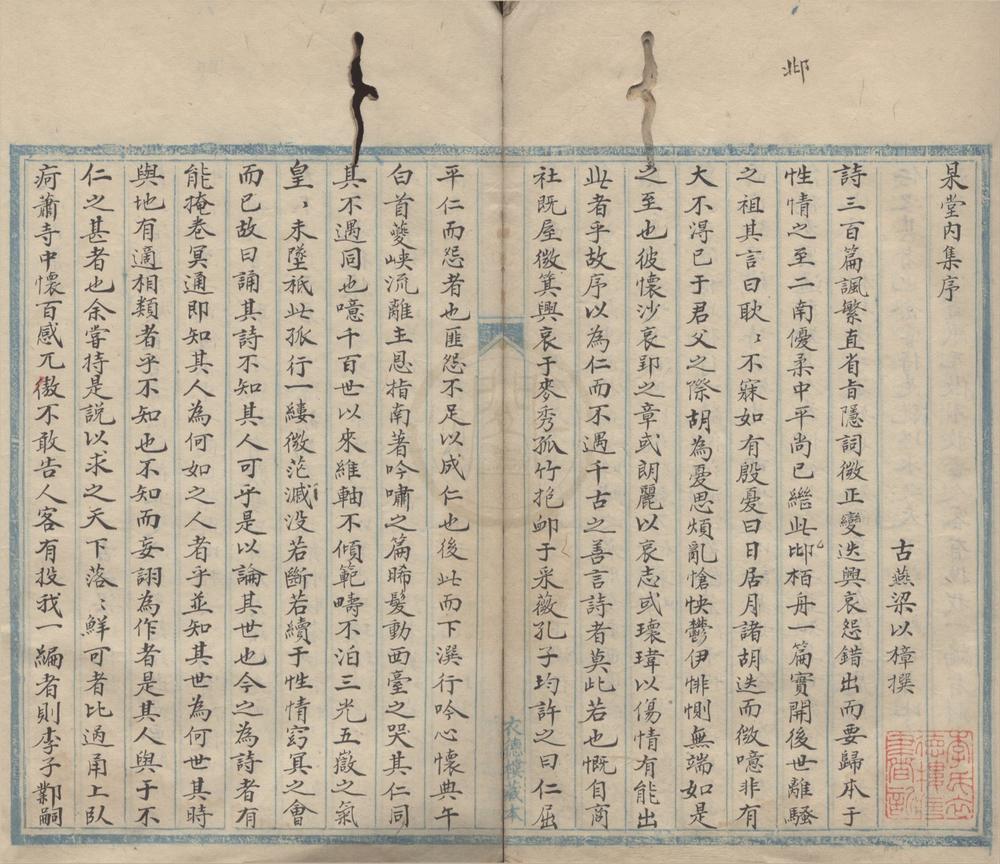 邶
杲堂內集序
古燕梁以樟撰
詩三百篇諷繁直省旨隱詞微正變迭興哀怨錯出而要歸本于
性情之至二南優柔中平尚已繼此邶柏舟一篇實開後世離騷
之祖其言曰耿〻不寐如有殷憂曰日居月諸胡迭而微噫非有
大不得已于君父之際胡為憂思煩亂愴怏鬱伊悱惻無端如是
之至也彼懷沙哀郢之章或朗麗以哀志或瓌瑋以傷情有能出
此者乎故序以為仁而不遇千古之善言詩者莫此若也慨自商
社既屋微箕興哀于麥秀孤竹抱卹于采薇孔子均許之曰仁屈
平仁而怨者也匪怨不足以成仁也後此而下澤行吟心懷典午
白首夔峽流離主恩指南著吟嘯之篇晞髮動西臺之哭其仁同
其不遇同也噫千百世以來維軸不傾範疇不泊三光五嶽之氣
皇〻未墜祗此孤行一縷微茫滅没若斷若續于性情窈冥之會
而已故曰誦其詩不知其人可乎是以論其世也今之為詩者有
能掩卷冥通即知其人為何如之人者乎並知其世為何世其時
與地有適相類者乎不知也不知而妄詡為作者是其人與于不
仁之甚者也余嘗持是說以求之天下落〻鮮可者比過甬上臥
疴蕭寺中懷百感兀傲不敢告人客有投我一編者則李子鄴嗣
衣德樓藏本